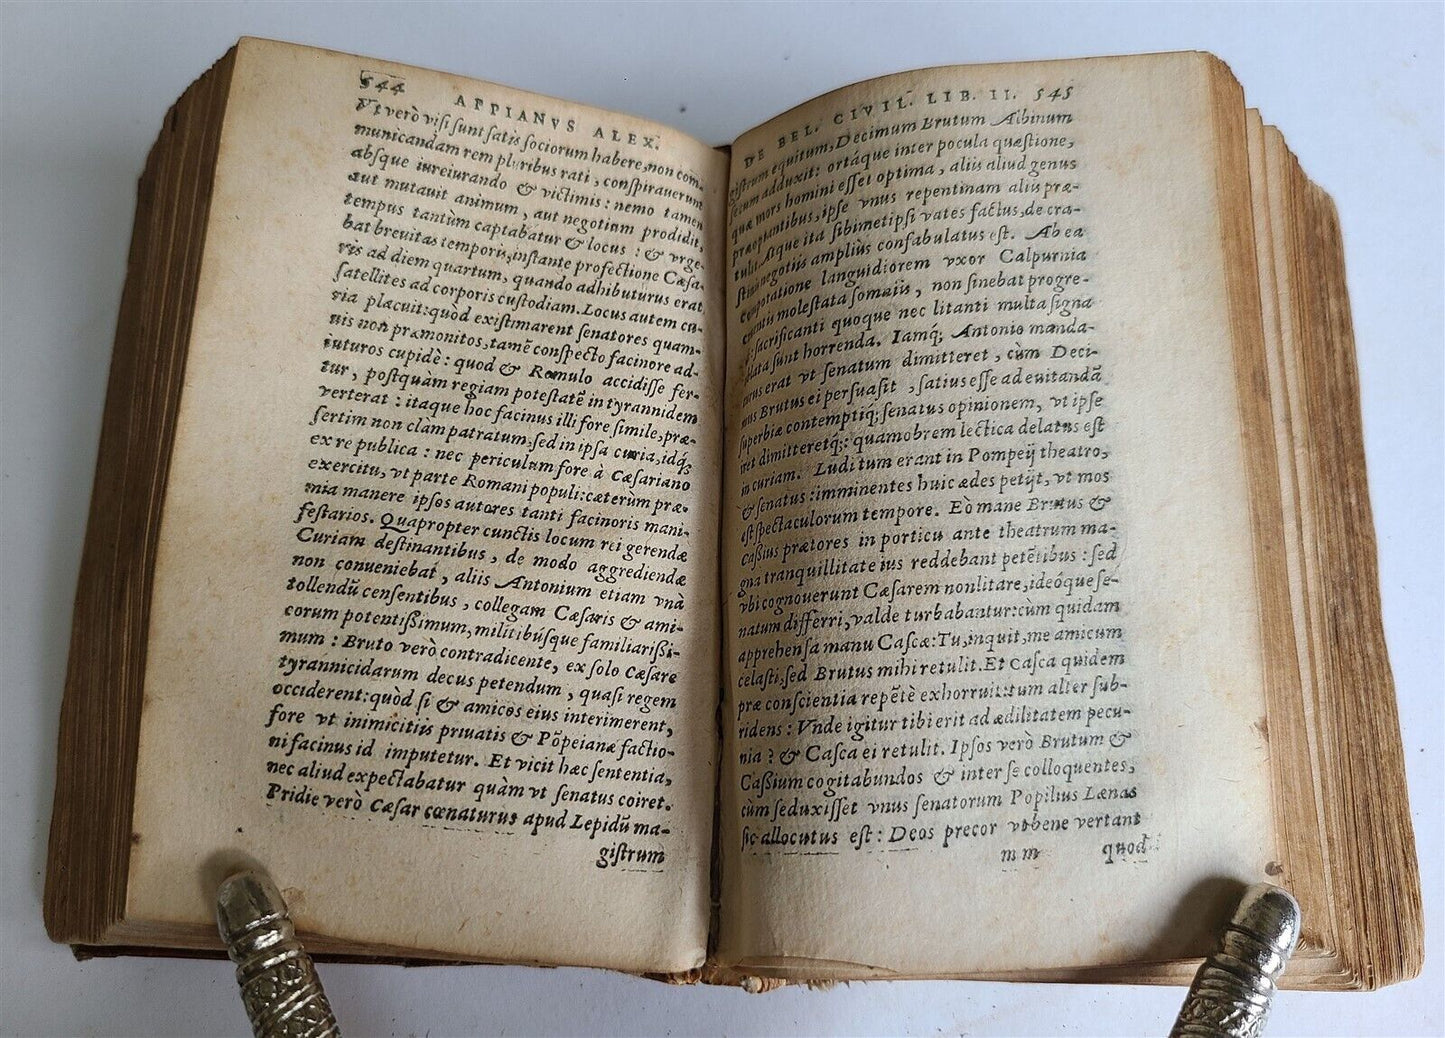 544
APPIANVS ALEX.
Vt verò visi sunt satis sociorum habere, non com-
municandam rem pluribus rati, conspirauerunt
absque iureiurando & victimis: nemo tamen
aut mutauit animum, aut negotium prodidit,
tempus tantùm captabatur & locus: & vrge-
bat breuitas temporis, instante profectione Cæsa-
ris ad diem quartum, quando adhibuturus erat
satellites ad corporis custodiam. Locus autem cu-
ria placuit: quòd existimarent senatores quam-
uis non præmonitos, tamē conspecto facinore ad-
iuturos cupidè: quod & Romulo accidisse fer-
tur, postquàm regiam potestatē in tyrannidem
verterat: itaque hoc facinus illi fore simile, præ-
sertim non clàm patratum, sed in ipsa curia, idq;
ex re publica: nec periculum fore à Cæsariano
exercitu, vt parte Romani populi: cæterùm præ-
mia manere ipsos autores tanti facinoris mani-
festarios. Quapropter cunctis locum rei gerendæ
Curiam destinantibus, de modo aggrediendæ
non conueniebat, aliis Antonium etiam vnà
tollendū censentibus, collegam Cæsaris & ami-
corum potentissimum, militibúsque familiarissi-
mum: Bruto verò contradicente, ex solo Cæsare
tyrannicidarum decus petendum, quasi regem
occiderent: quòd si & amicos eius interimerent,
fore vt inimicitiis priuatis & Pōpeianæ factio-
ni facinus id imputetur. Et vicit hæc sententia,
nec aliud expectabatur quàm vt senatus coiret.
Pridie verò Cæsar cœnaturus apud Lepidū ma-
gistrum
DE BEL. CIVIL. LIB. II. 545
gistrum equitum, Decimum Brutum Albinum
secum adduxit: ortáque inter pocula quæstione,
quæ mors homini esset optima, aliis aliud genus
præoptantibus, ipse vnus repentinam aliis præ-
tulit. Atque ita sibimetipsi vates factus, de cra-
stinis negotiis ampliùs confabulatus est. Ab ea
compotatione languidiorem vxor Calpurnia
cruentis molestata somniis, non sinebat progre-
di: sacrificanti quoque nec litanti multa signa
oblata sunt horrenda. Iamq; Antonio manda-
turus erat vt senatum dimitteret, cùm Deci-
mus Brutus ei persuasit, satius esse ad euitandā
superbiæ contemptiq; senatus opinionem, vt ipse
iret dimitteretq;: quamobrem lectica delatus est
in curiam. Ludi tum erant in Pompeij theatro,
& senatus: imminentes huic ædes petijt, vt mos
est spectaculorum tempore. Eò mane Brutus &
Cassius prætores in porticu ante theatrum ma-
gna tranquillitate ius reddebant petētibus: sed
vbi cognouerunt Cæsarem non litare, ideóque se-
natum differri, valde turbabantur: cùm quidam
apprehensa manu Cascæ: Tu, inquit, me amicum
celasti, sed Brutus mihi retulit. Et Casca quidem
præ conscientia repētè exhorruit: tum alter sub-
ridens: Vnde igitur tibi erit ad ædilitatem pecu-
nia? & Casca ei retulit. Ipsos verò Brutum &
Cassium cogitabundos & inter se colloquentes,
cùm seduxisset vnus senatorum Popilius Lænas
sic allocutus est: Deos precor vt bene vertant
mm quod